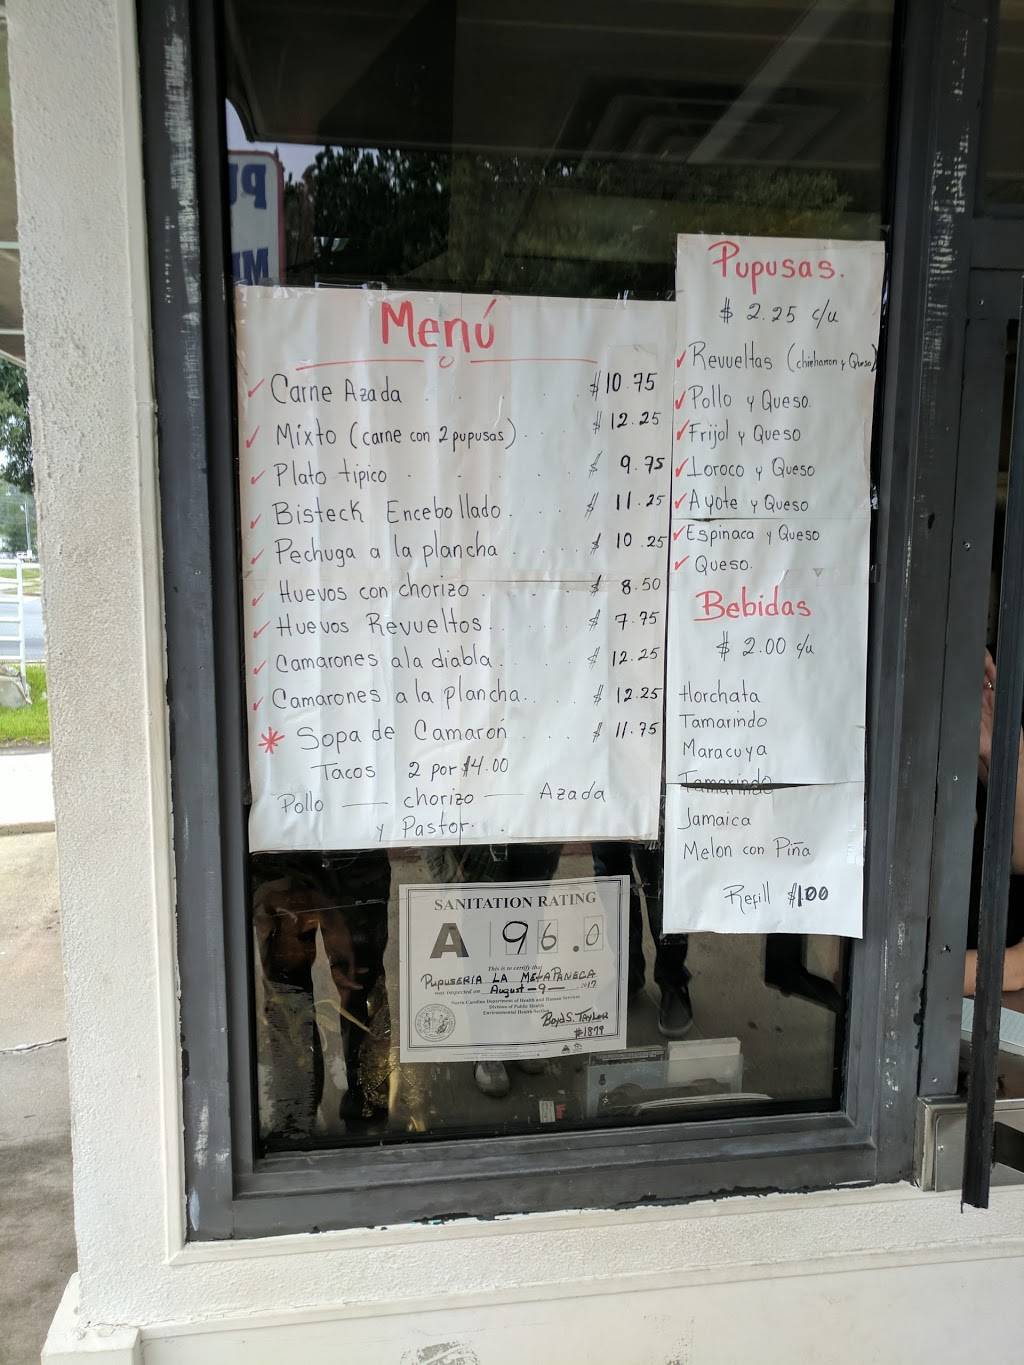 Menú
Carne Azada . . . . $10.75
Mixto (carne con 2 pupusas) . . . $12.25
Plato tipico . . . . $ 9.75
Bisteck Encebollado . . . $ 11.25
Pechuga a la plancha . . . . $ 10.25
Huevos con chorizo . . . . $ 8.50
Huevos Revueltos . . . . $ 7.75
Camarones a la diabla . . . . $ 12.25
Camarones a la plancha . . . . $ 12.25
* Sopa de Camarón . . . . $ 11.75
Tacos 2 por $4.00
Pollo — chorizo — Azada
y Pastor.
Pupusas.
$ 2.25 c/u
Revueltas (chicharron y Queso)
Pollo y Queso.
Frijol y Queso
Loroco y Queso
Ayote y Queso
Espinaca y Queso
Queso.
Bebidas
$ 2.00 c/u
Horchata
Tamarindo
Maracuya
Tamarindo
Jamaica
Melon con Piña
Refill $1.00
SANITATION RATING
A 96.0
This is to certify that
PUPUSERIA LA METAPANECA
was inspected on August-9- 2017
North Carolina Department of Health and Human Services
Division of Public Health
Environmental Health Section
Boyd S. Taylor
#1879